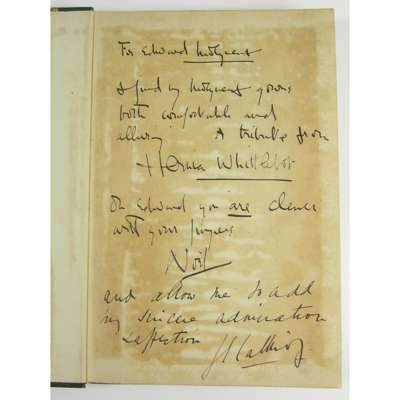 For Edward Molyneux
I find my Molyneux gowns
both comfortable and
alluring A tribute from
Hernia Whittlebot
Oh Edward you are clever
with your fingers
Noël
and allow me to add
my sincere admiration
& affection